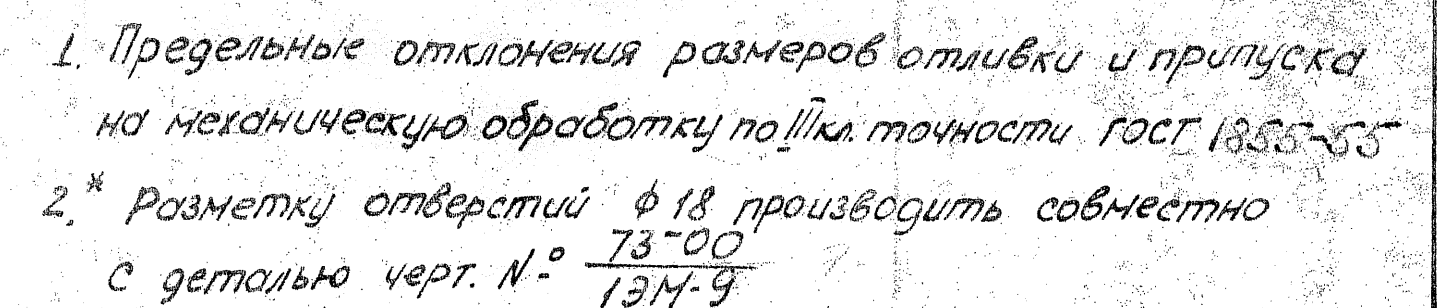 1. Предельные отклонения размеров отливки и припуска
на механическую обработку по III кл. точности ГОСТ 1855-55
2.* Разметку отверстий ф 18 производить совместно
с деталью черт. № 73-00
1ЭМ-9